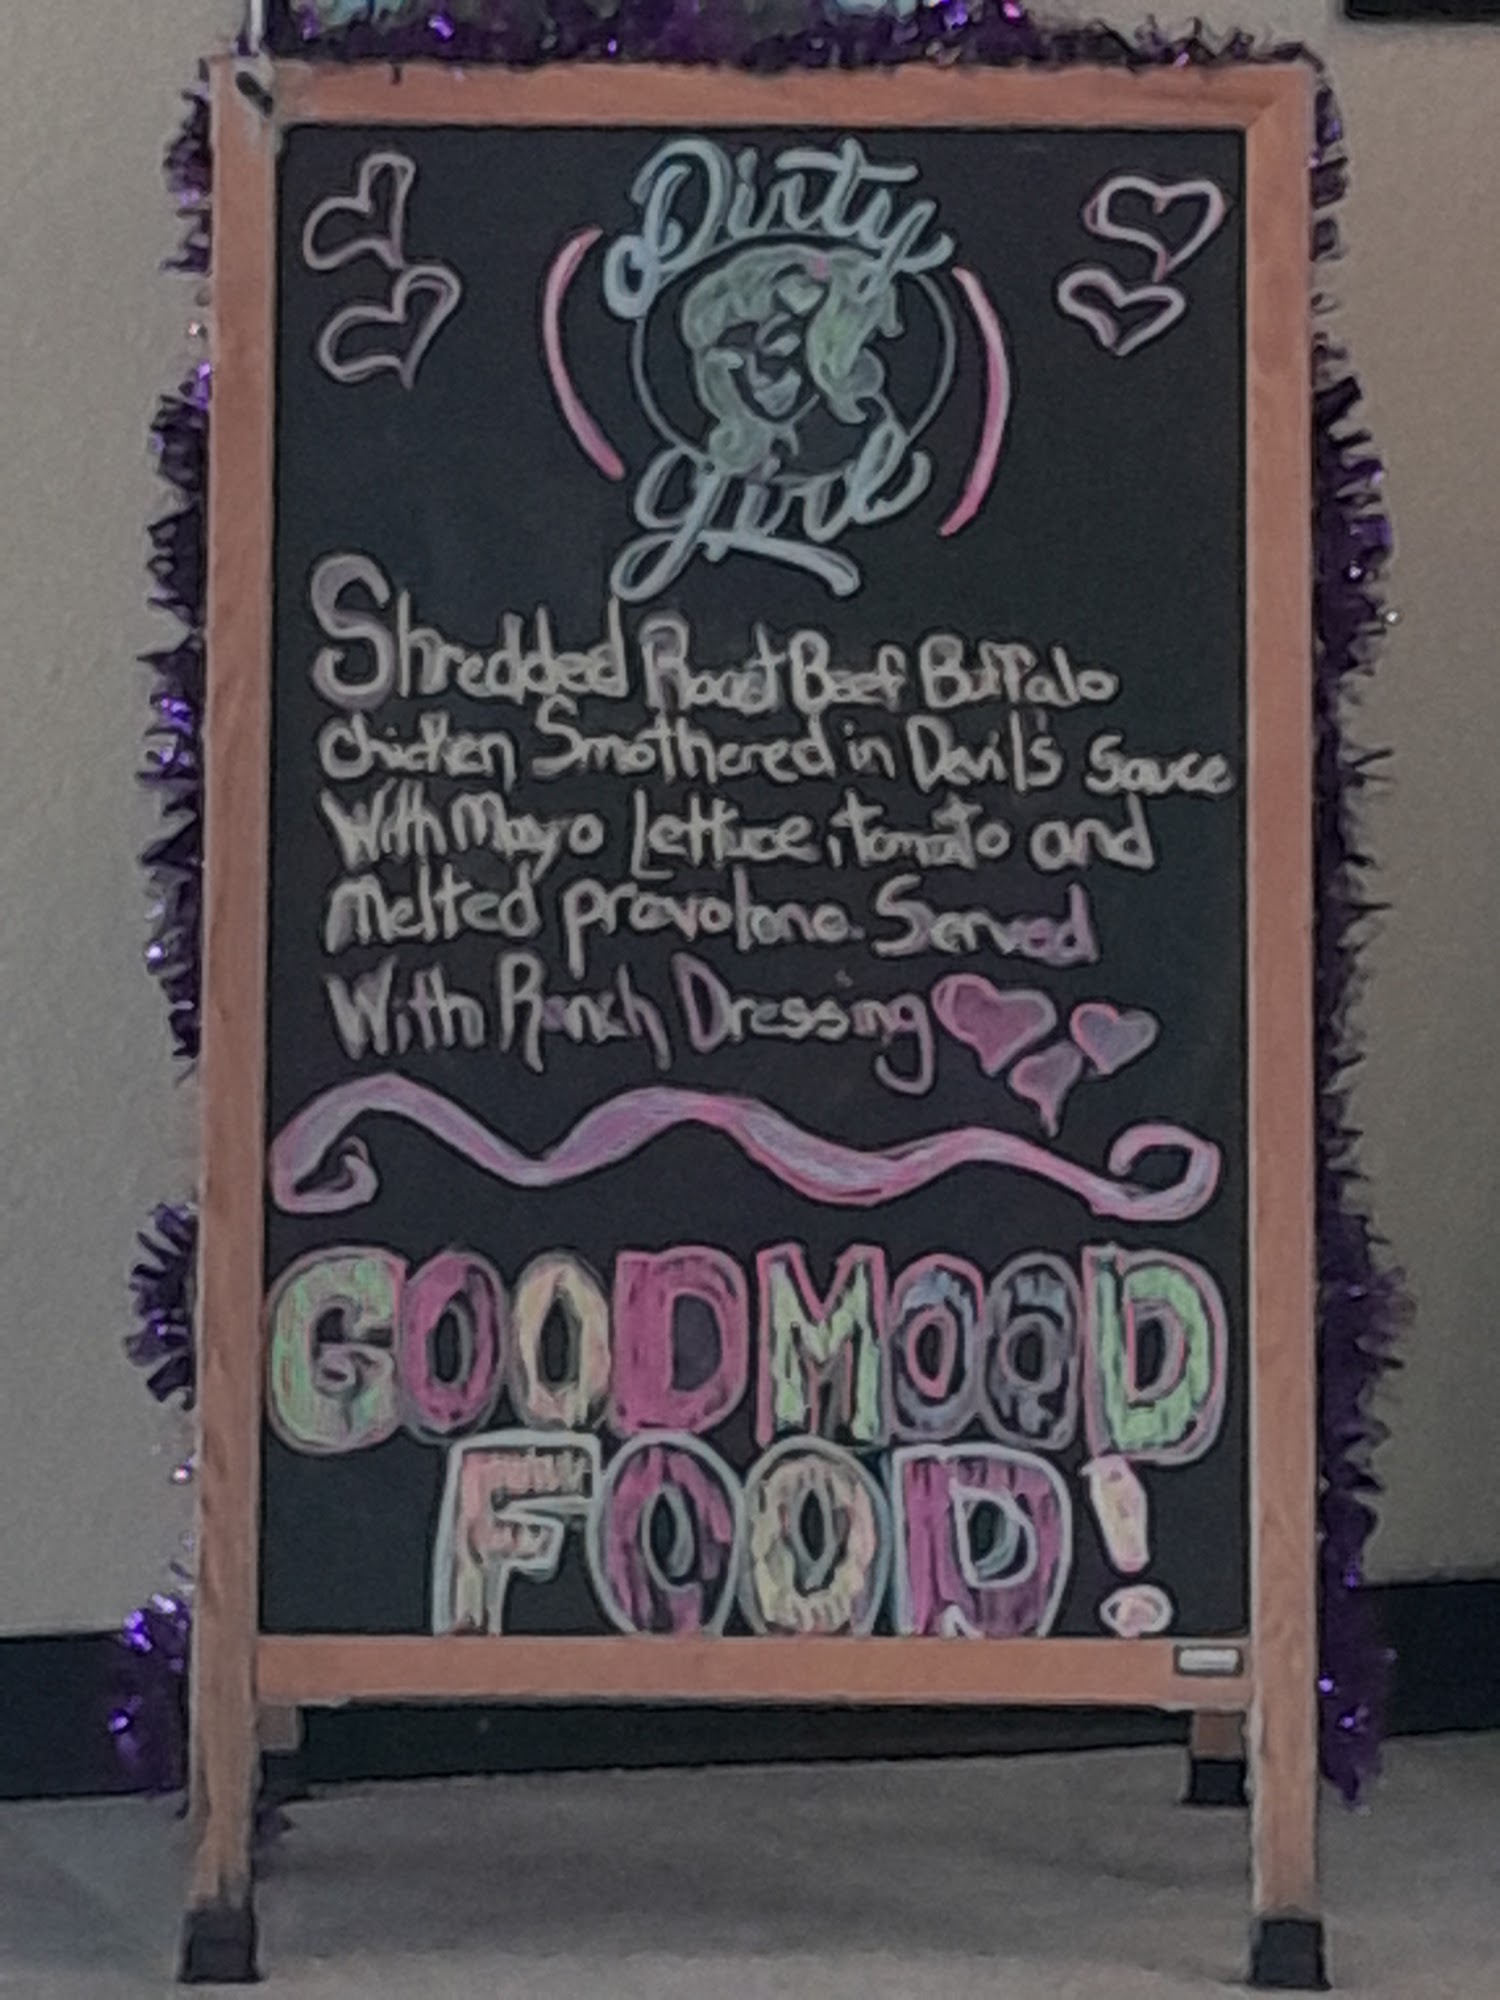 Dirty
Girl
Shredded Roast Beef Buffalo
chicken Smothered in Devil's Sauce
With Mayo Lettuce, tomato and
Melted provolone. Served
With Ranch Dressing
GOOD MOOD
FOOD!